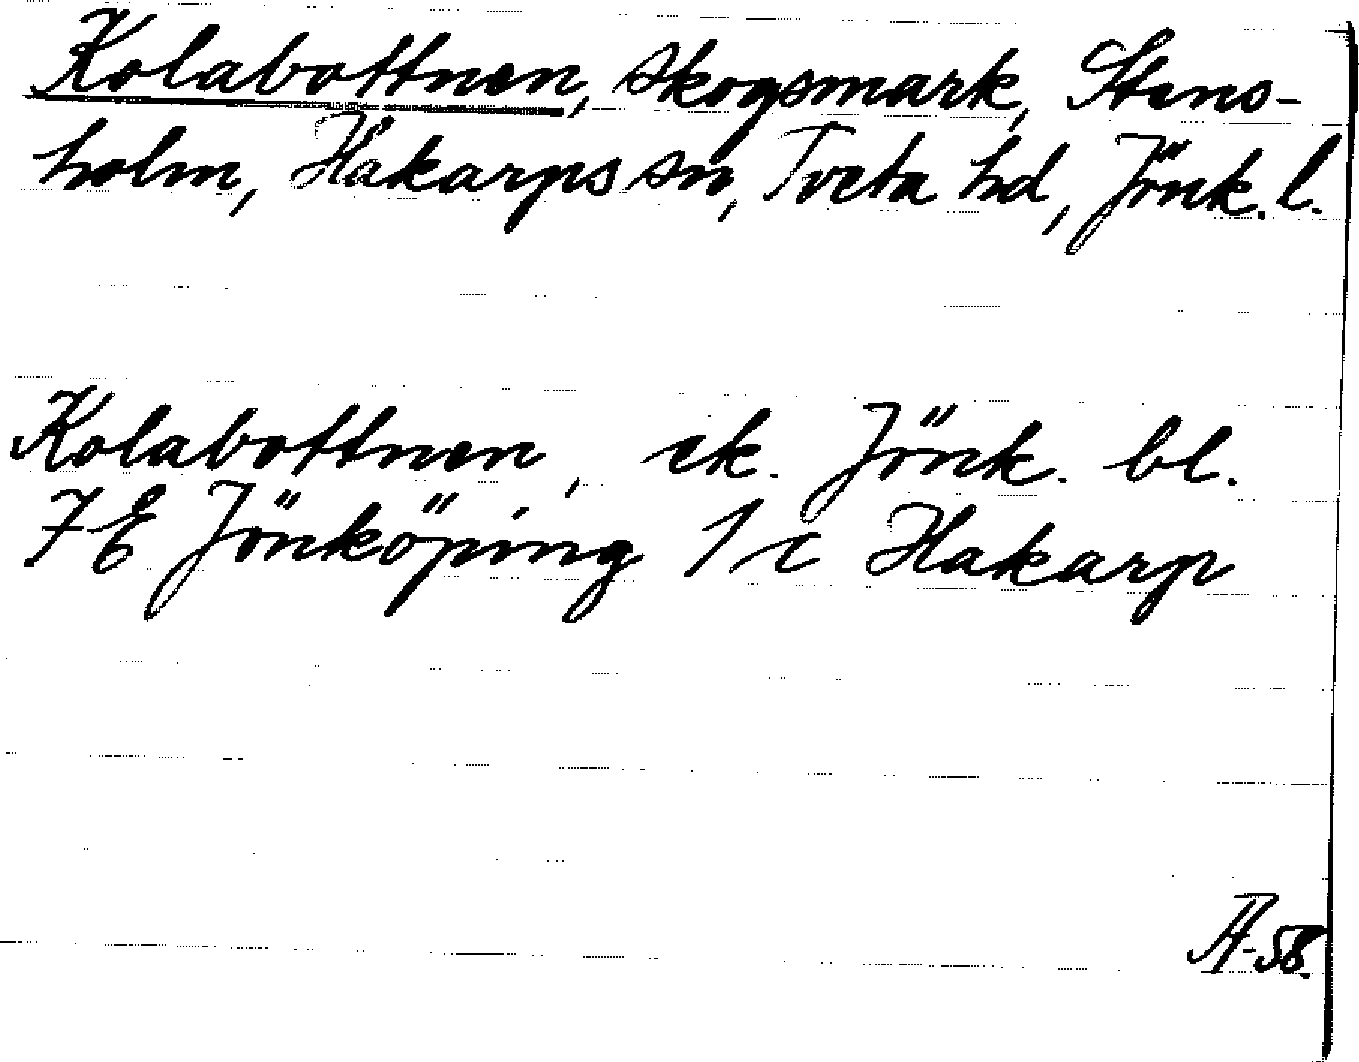 Kolabottnen, skogsmark, Stens-
holm, Håkarps sn, Tveta hd, Jönk. l.
Kolabottnen, ek. Jönk. bl.
7 E Jönköping 1 c Hakarp
A-58.